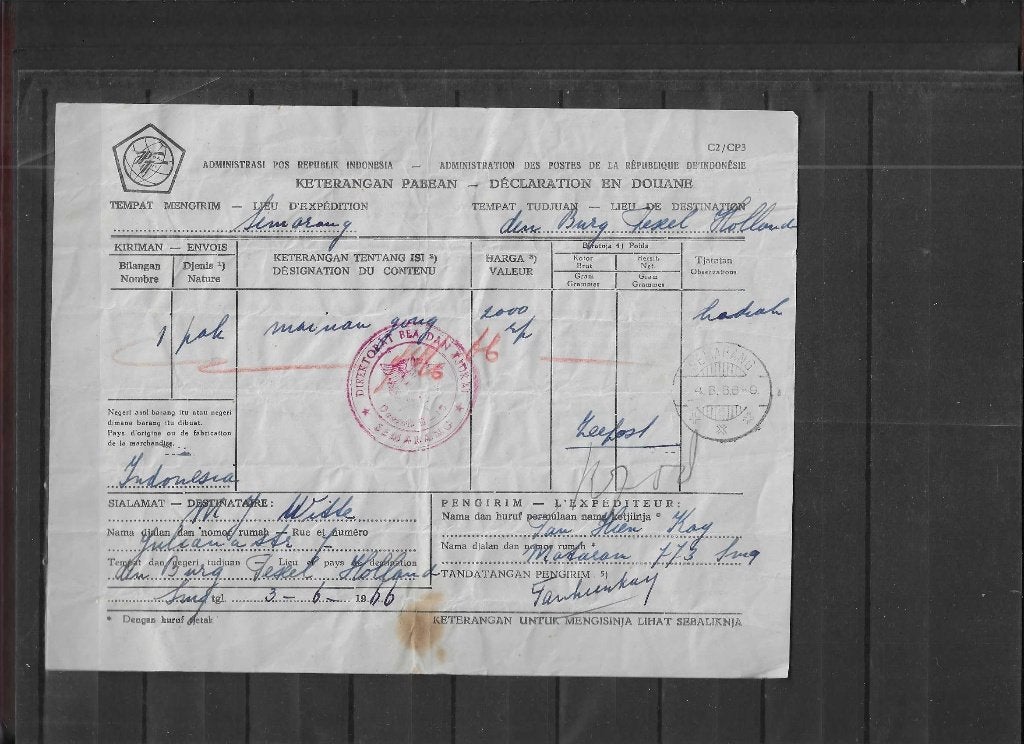 C2/CP3
ADMINISTRASI POS REPUBLIK INDONESIA — ADMINISTRATION DES POSTES DE LA RÉPUBLIQUE D'INDONÉSIE
KETERANGAN PABEAN — DÉCLARATION EN DOUANE
TEMPAT MENGIRIM — LIEU D'EXPÉDITION
Semarang
TEMPAT TUDJUAN — LIEU DE DESTINATION
den Burg Texel Holland
KIRIMAN — ENVOIS
Bilangan
Nombre
Djenis ¹)
Nature
KETERANGAN TENTANG ISI ²)
DÉSIGNATION DU CONTENU
HARGA ³)
VALEUR
Beratnja 4) Poids
Kotor
Brut
Gram
Grammes
Bersih
Net.
Gram
Grammes
Tjatatan
Observations
1 pak
mainan gong
2000
rp
hadiah
66
DIREKTORAT BEA DAN TJUKAI
SEMARANG
SEMARANG
4.6.66-9
Zeepost
Negeri asal barang itu atau negeri
dimana barang itu dibuat.
Pays d'origine ou de fabrication
de la marchandise.
Indonesia
SIALAMAT — DESTINATAIRE:
Witte
Nama djalan dan nomor rumah * Rue et numéro
Juliana str
Tempat dan negeri tudjuan Lieu et pays de destination
den Burg Texel Holland
Smg tgl. 3 - 6 - 1966
* Dengan huruf tjetak
PENGIRIM — L'EXPÉDITEUR:
Nama dan huruf permulaan nama ketjilnja *
Tan Hien Kay
Nama djalan dan nomor rumah *
Mataram 773 Smg
TANDATANGAN PENGIRIM ⁵)
Tanhienkay
KETERANGAN UNTUK MENGISINJA LIHAT SEBALIKNJA